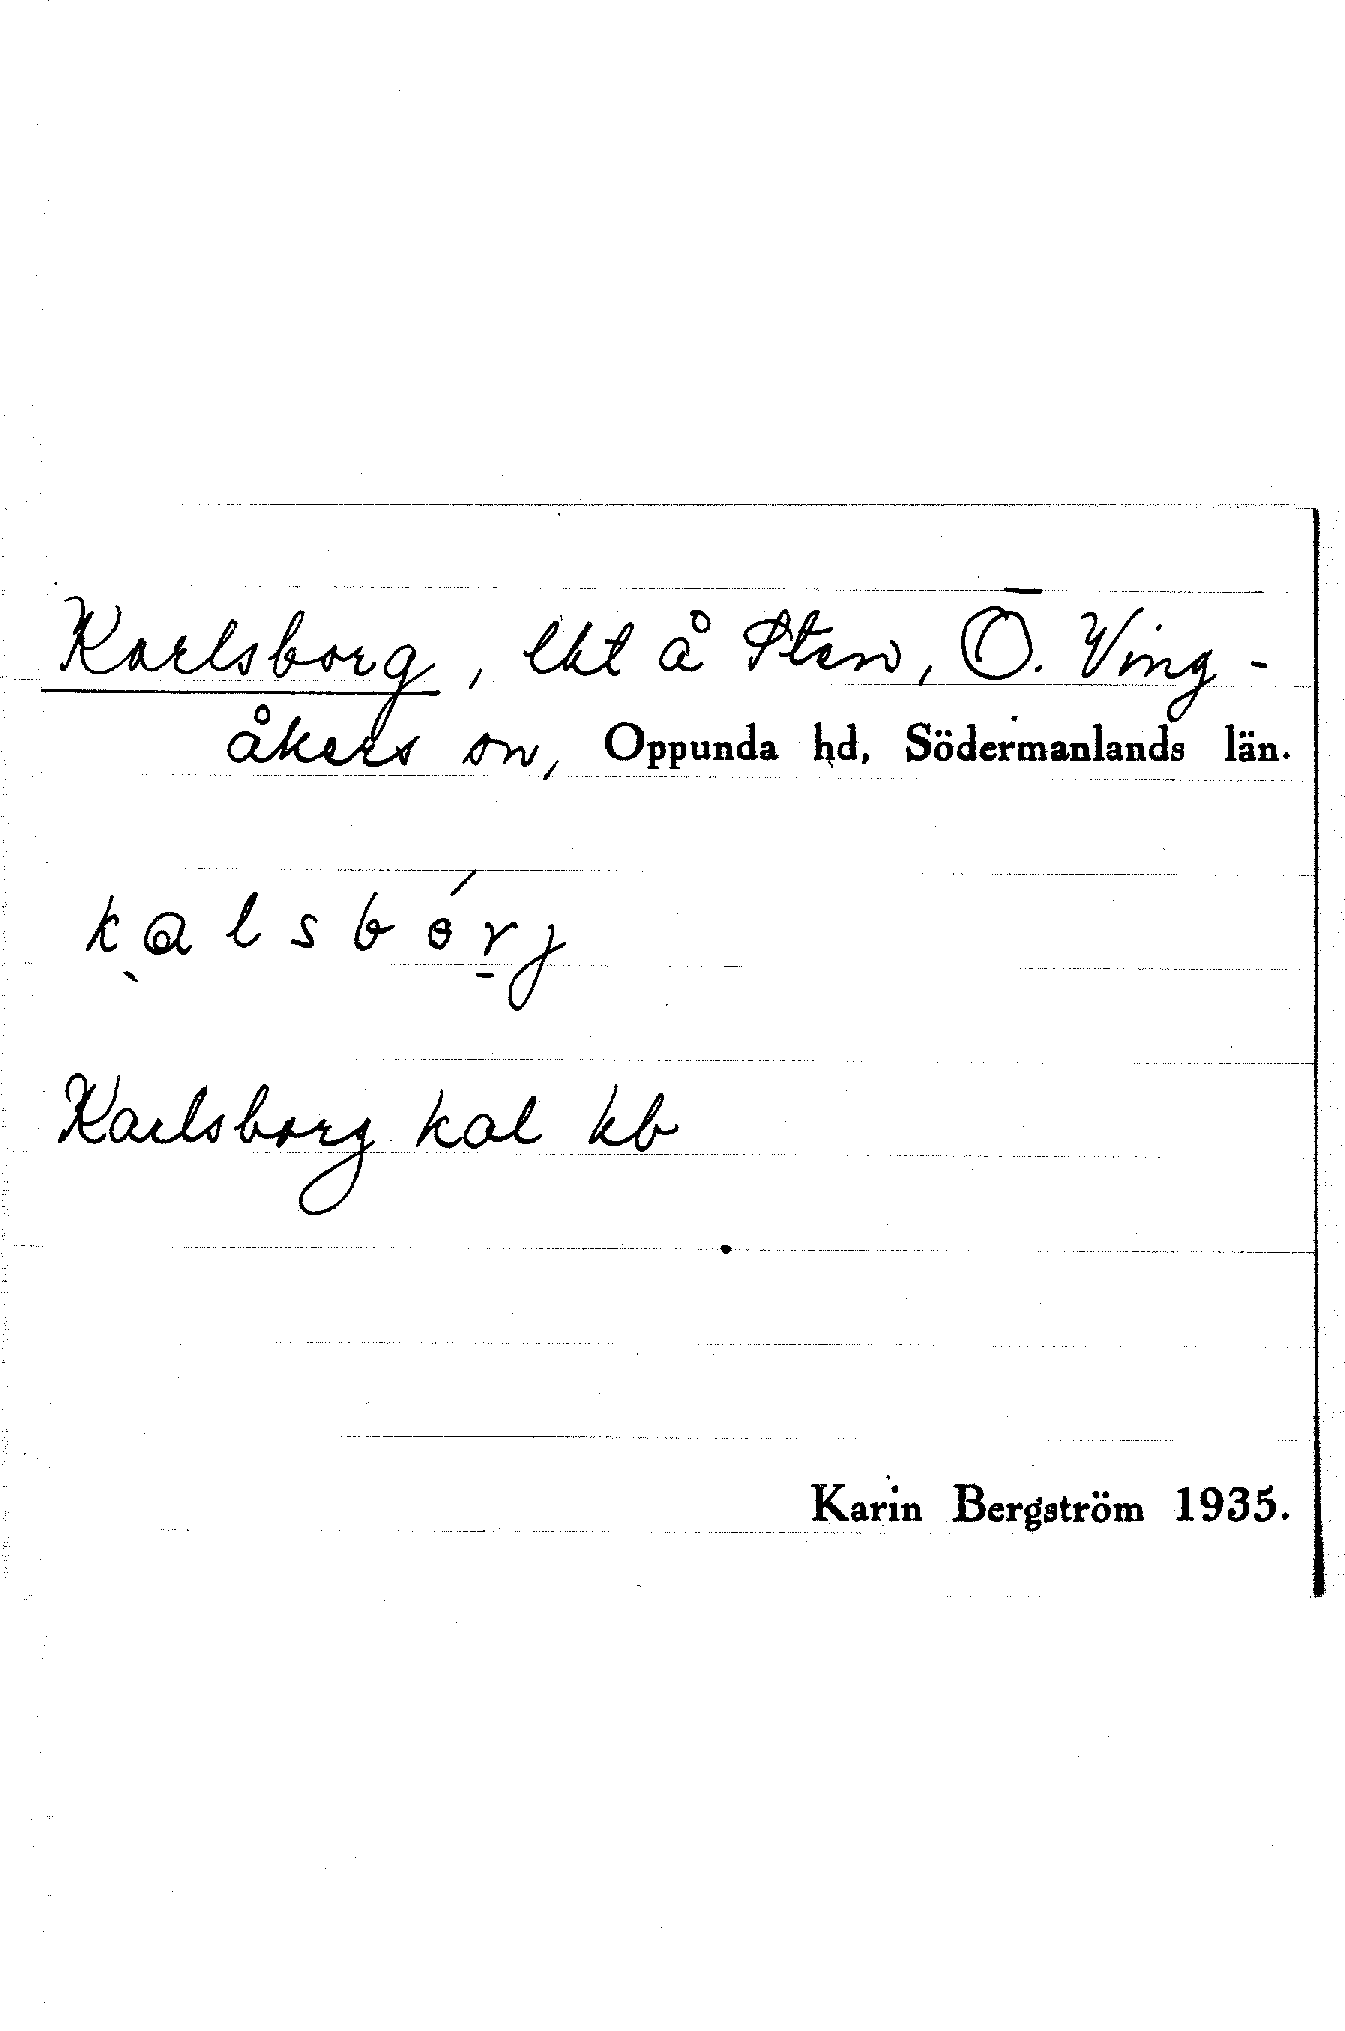 Karlsborg, lht å Sten, Ö. Ving-
åkers sn, Oppunda hd, Södermanlands län.
kalsbórj
Karlsborg kal kb
Karin Bergström 1935.